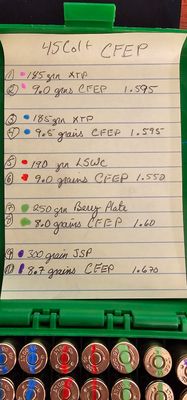 45 Colt CFEP
① 185 grn XTP
② 9.0 grns CFEP 1.595
③ 185 grn XTP
④ 9.5 grains CFEP 1.595
⑤ 190 grn LSWC
⑥ 9.0 grains CFEP 1.550
⑦ 250 grn Berry Plate
⑧ 8.0 grains CFEP 1.60
⑨ 300 grain JSP
⑩ 8.7 grains CFEP 1.670